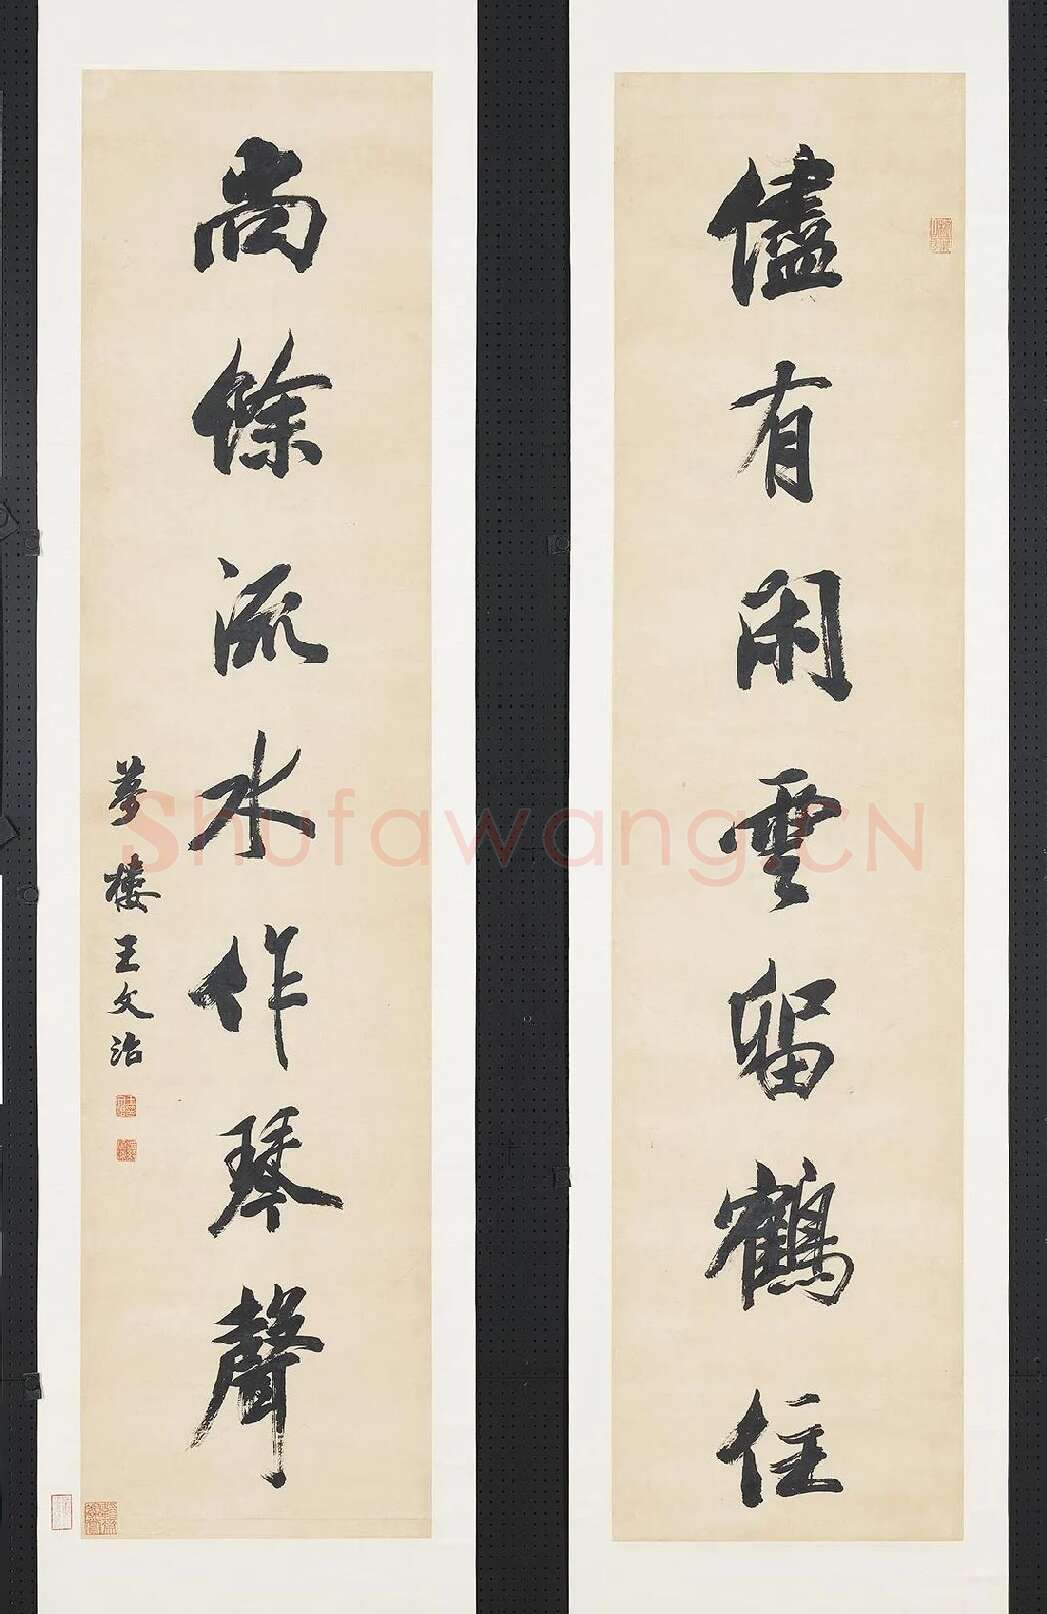 儘有閑雲留鶴住
尚餘流水作琴聲
夢樓王文治
Shufawang.CN